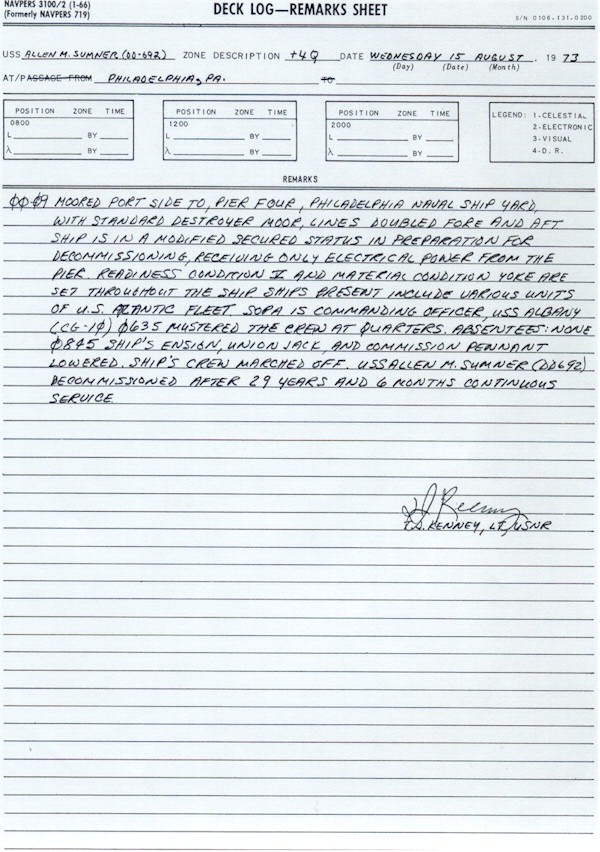 NAVPERS 3100/2 (1-66)
(Formerly NAVPERS 719)
DECK LOG—REMARKS SHEET
S/N 0106-131-0200
USS ALLEN M. SUMNER (DD-692) ZONE DESCRIPTION +4Q DATE WEDNESDAY 15 AUGUST, 1973
(Day) (Date) (Month)
AT/PASSAGE FROM PHILADELPHIA, PA. TO
POSITION ZONE TIME
0800
L BY
λ BY
POSITION ZONE TIME
1200
L BY
λ BY
POSITION ZONE TIME
2000
L BY
λ BY
LEGEND: 1-CELESTIAL
2-ELECTRONIC
3-VISUAL
4-D. R.
REMARKS
00-09 MOORED PORT SIDE TO, PIER FOUR, PHILADELPHIA NAVAL SHIP YARD,
WITH STANDARD DESTROYER MOOR, LINES DOUBLED FORE AND AFT
SHIP IS IN A MODIFIED SECURED STATUS IN PREPARATION FOR
DECOMMISSIONING, RECEIVING ONLY ELECTRICAL POWER FROM THE
PIER. READINESS CONDITION V AND MATERIAL CONDITION YOKE ARE
SET THROUGHOUT THE SHIP SHIPS PRESENT INCLUDE VARIOUS UNITS
OF U.S. ATLANTIC FLEET. SOPA IS COMMANDING OFFICER, USS ALBANY
(CG-10) 0635 MUSTERED THE CREW AT QUARTERS. ABSENTEES: NONE
0845 SHIP'S ENSIGN, UNION JACK, AND COMMISSION PENNANT
LOWERED. SHIP'S CREW MARCHED OFF. USS ALLEN M. SUMNER (DD692)
DECOMMISSIONED AFTER 29 YEARS AND 6 MONTHS CONTINUOUS
SERVICE.
KENNEY, LT, USNR